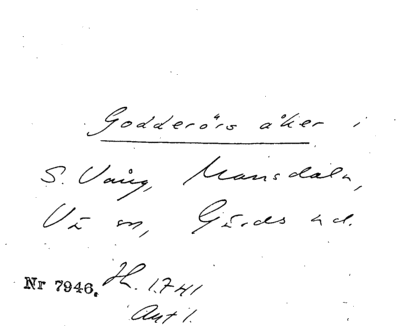 Godderörs åker i
S. Vång, Mansdala,
Vä sn, Gärds hd.
Nr 7946. Hh. 1741
Akt 1.